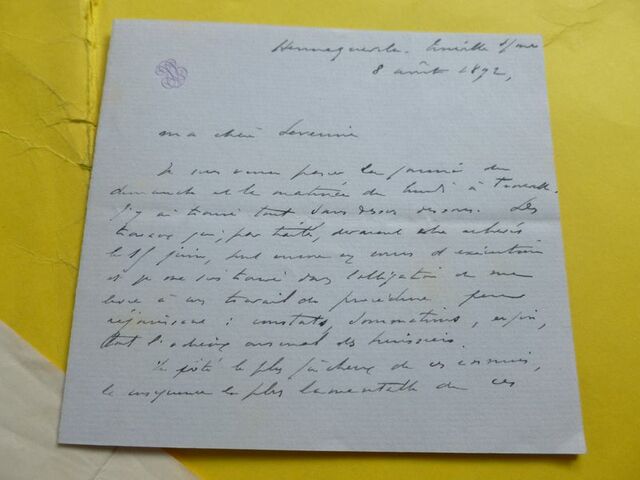 Hennequeville. Trouville s/mer
8 août 1892,
ma chère
Je suis venu passer la journée du
dimanche et la matinée du lundi à Trouville.
J'y ai trouvé tout sens dessus dessous. Les
travaux qui, par traité, devraient être achevés
le 15 juin, sont encore en cours d'exécution
et je me suis trouvé dans l'obligation de me
livrer à un travail de procédure peu
réjouissant : constats, sommations, enfin,
tout l'odieux arsenal des huissiers.
Le côté le plus fâcheux de ces ennuis,
la conséquence la plus lamentable de ces